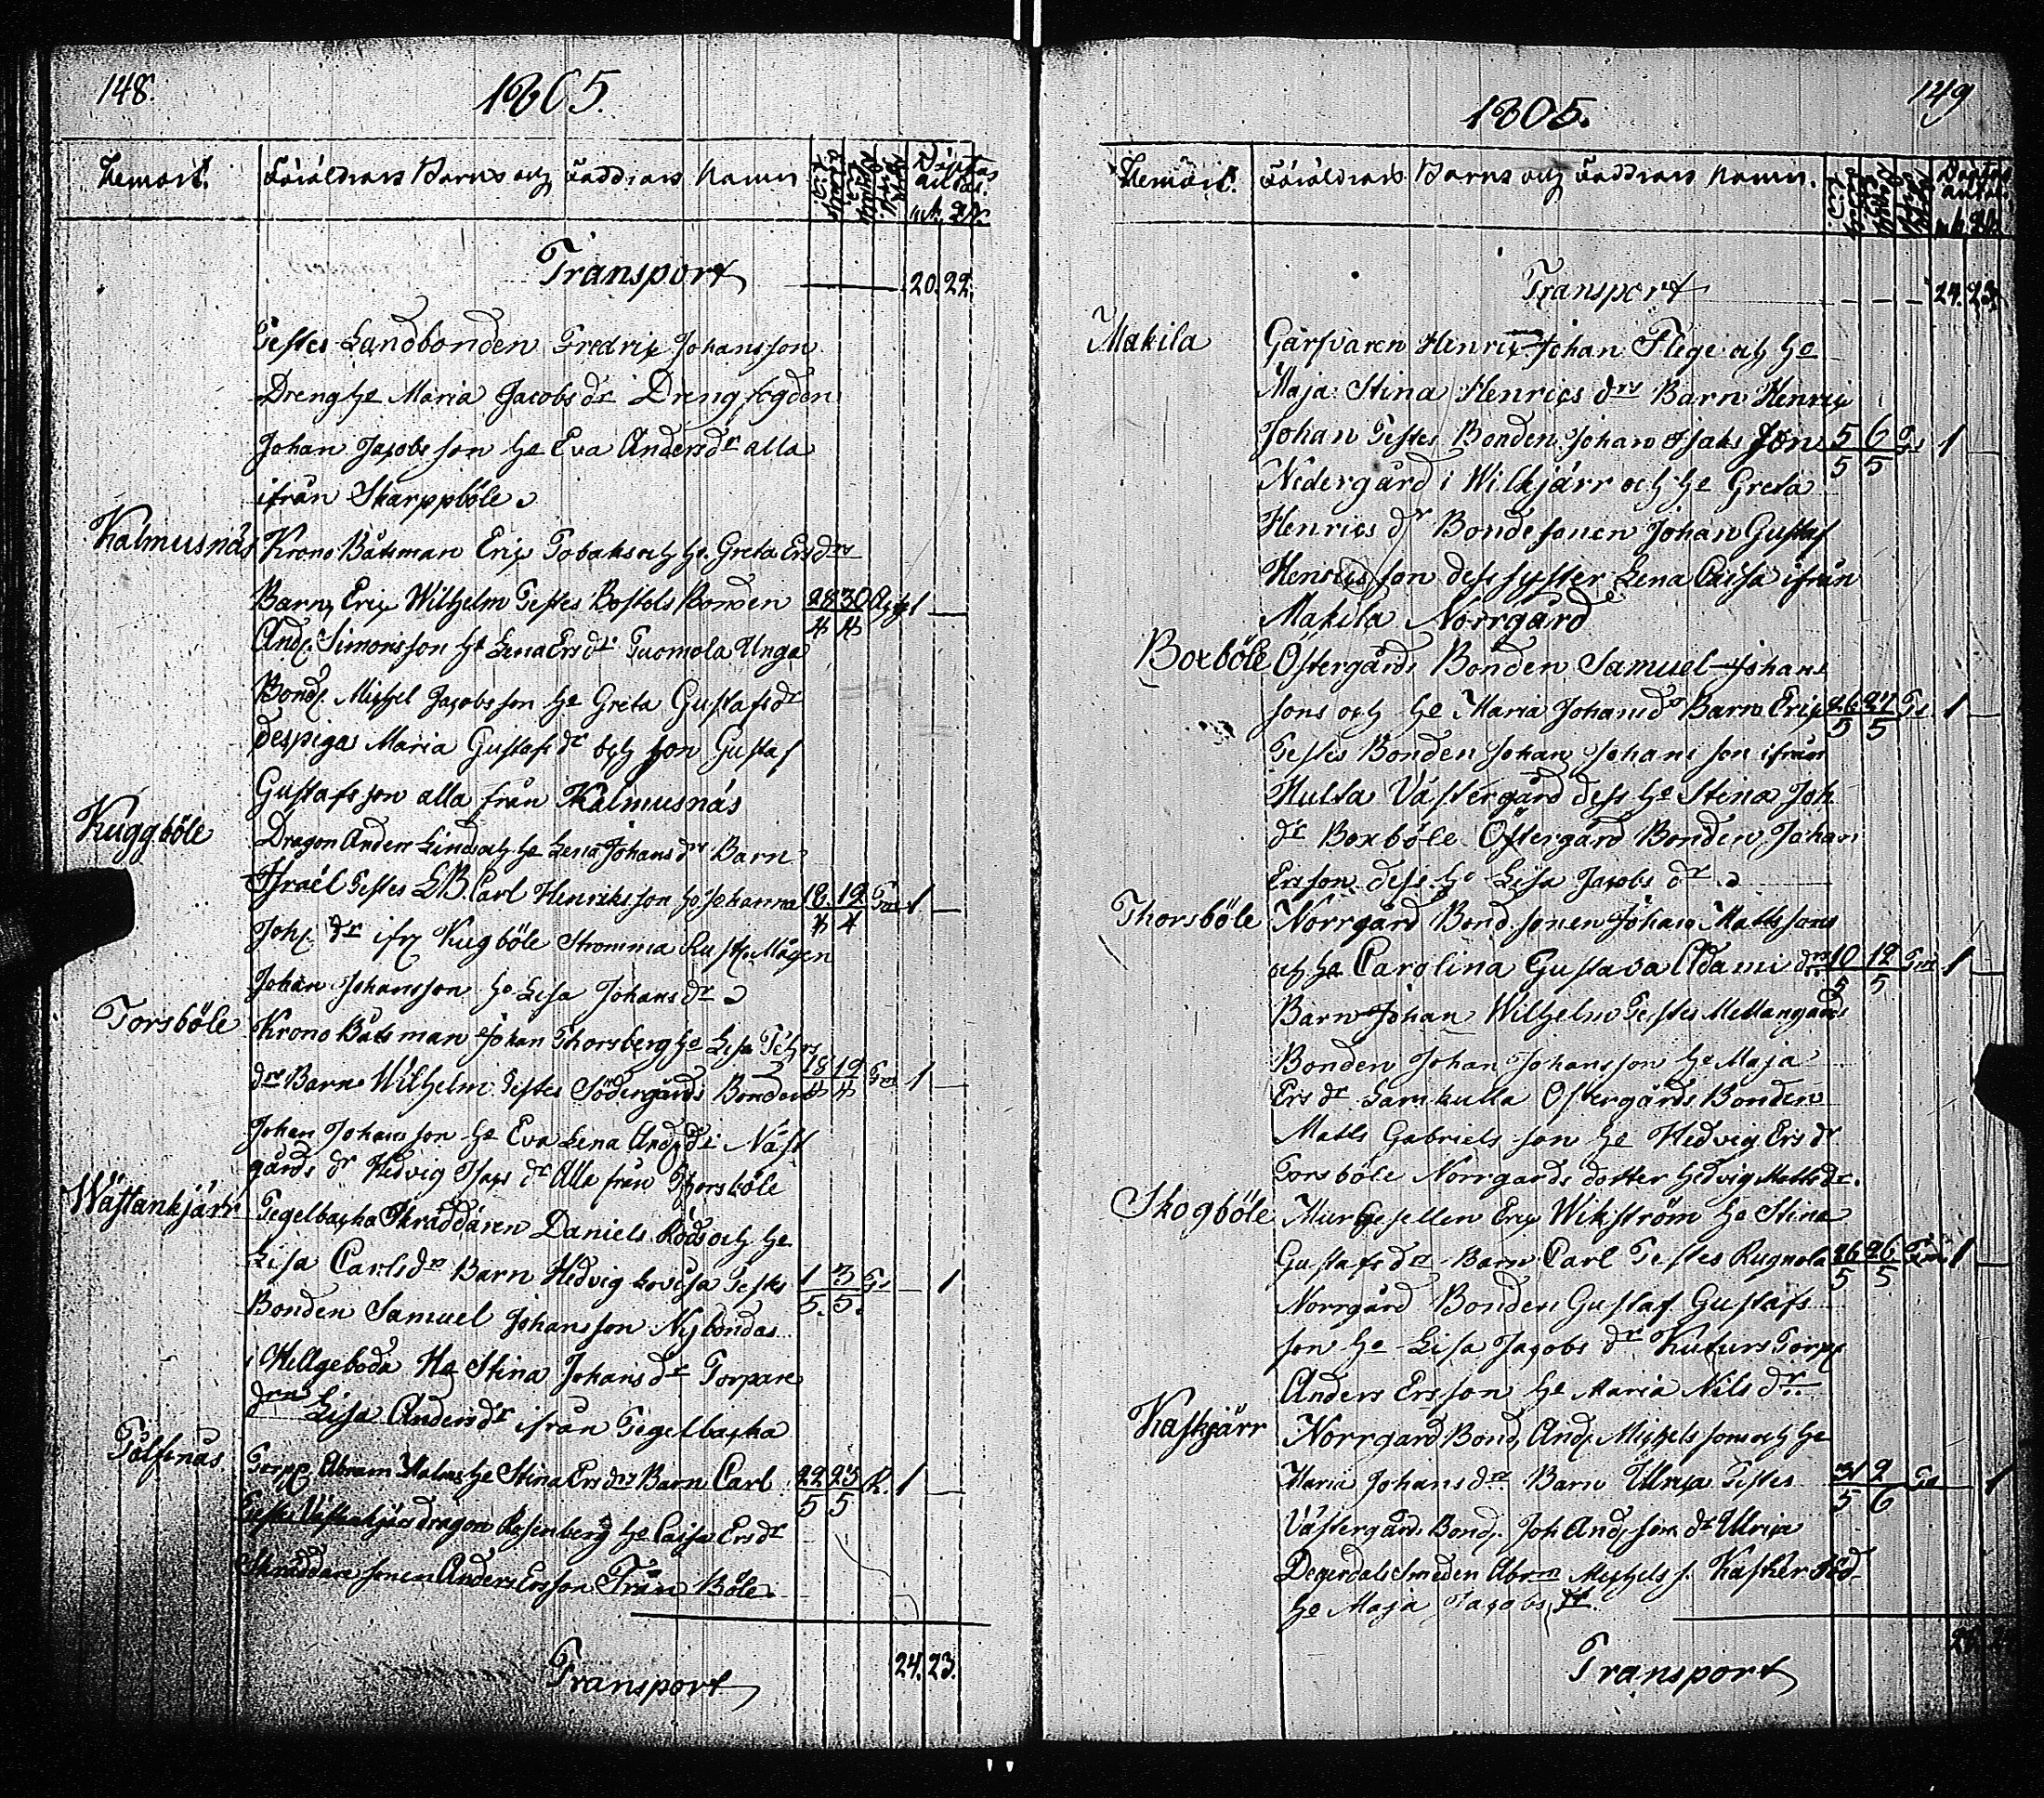 148.
1805.
Hemvist. Föräldrars Barns och Faddrars Namn
Transport 20. 22.
Testes Landbonden Fredric Johansson
Dreng He Maria Jacobs dr Drengfogden
Johan Jacobsson He Eva Anders dr alla
ifrån Skarppböle
Kalmusnäs Krono Båtsman Eric Tobaks och He Greta Ers drs
Barn Eric Wilhelm Testes Bostols Bonden 28 30 1 —
4 4
And. Simonsson He Lena Ers dr Tuomola Unga
Bond. Michel Jacobsson He Greta Gustafs dr
des piga Maria Gustafs dr och son Gustaf
Gustafsson alla från Kalmusnäs
Kuggböle
Dragon Anders Linds och He Lena Johans drs Barn
Israël Testes LB. Carl Henriksson Ho Johanna 18. 19. Gm 1 —
4 4
Joh. dr ifr. Kugböle Stromma Rusth. Mågen
Johan Johansson Ho Lisa Johans dr
Torsböle Krono Båtsman Johan Thorsberg He Lisa
drs Barn Wilhelm Testes Södergårds Bonden 18 19 Gm 1 —
4 4
Johan Johansson He Eva Lena And. dr Näst
gårds dr Hedvig Isacs dr Alla från Thorsböle
Wästankjärr Tegelbacka Skräddaren Daniels Röds och He
Lisa Carls drs Barn Hedvig Lovisa Testes 1 3 Gs — 1
5. 5.
Bonden Samuel Johansson Nybondas
i Hellgeboda He Stina Johans dr Torpare
drn Lisa Anders dr ifrån Tegelbacka
Tölfsnäs Torp. Abram Malms He Stina Ers drs Barn Carl 22 23 R. 1 —
5 5
Testes Vestankjärs dragon Rosenberg He Caisa Ers dr
Skräddare sonen Anders Ersson Från Böle
Transport 24. 23.
149
1805.
Hemvist. Föräldrars Barns och Faddrars Namn.
Transport 24. 23.
Makila Garfvaren Henric Johan Flege och He
Maja Stina Henrics drs Barn Henric
Johan Testes Bonden Johan Isaks son 5 6 Gs 1 —
5 5
Nedergård i Wilkjärr och He Greta
Henrics dr Bonde sonen Johan Gustaf
Henricsson dess syster Lena Caisa ifrån
Makila Norrgård
Boxböle Östergårds Bonden Samuel Johans
sons och He Maria Johans drs Barn Eric 26 27 Gs 1 —
5 5
Testes Bonden Johan Johansson ifrån
Hulta Västergård dess He Stina Joh.
dr Boxböle Östergård Bonden Johan
Ersson dess He Lisa Jacobs dr
Thorsböle Norrgård Bond. sonen Johan Mattssons
och He Carolina Gustava Adami drs 10 12 Gm 1 —
5 5
Barn Johan Wilhelm Testes Mellangårds
Bonden Johan Johansson He Maja
Ers dr Lamkulla Östergårds Bonden
Matts Gabrielsson He Hedvig Ers dr
Torsböle Norrgårds dotter Hedvig Matts dr.
Skogböle Murgesellen Eric Wikström He Stina
Gustafs drs Barn Carl Testes Rugnola 26 26 1 —
5 5
Norrgård Bonden Gustaf Gustafs
son He Lisa Jacobs dr Kuturs Torp.
Anders Ersson He Maria Nils dr.
Kaskjärr Norrgård Bond. And. Michelssons och He
Maria Johans drs Barn Ulrica Testes 31 2 Gs 1
5 6
Västergårds Bond. Joh And. son dr Ulrica
Degerdals Smeden Abrm Michels s.
He Maja Jacobs dr.
Transport